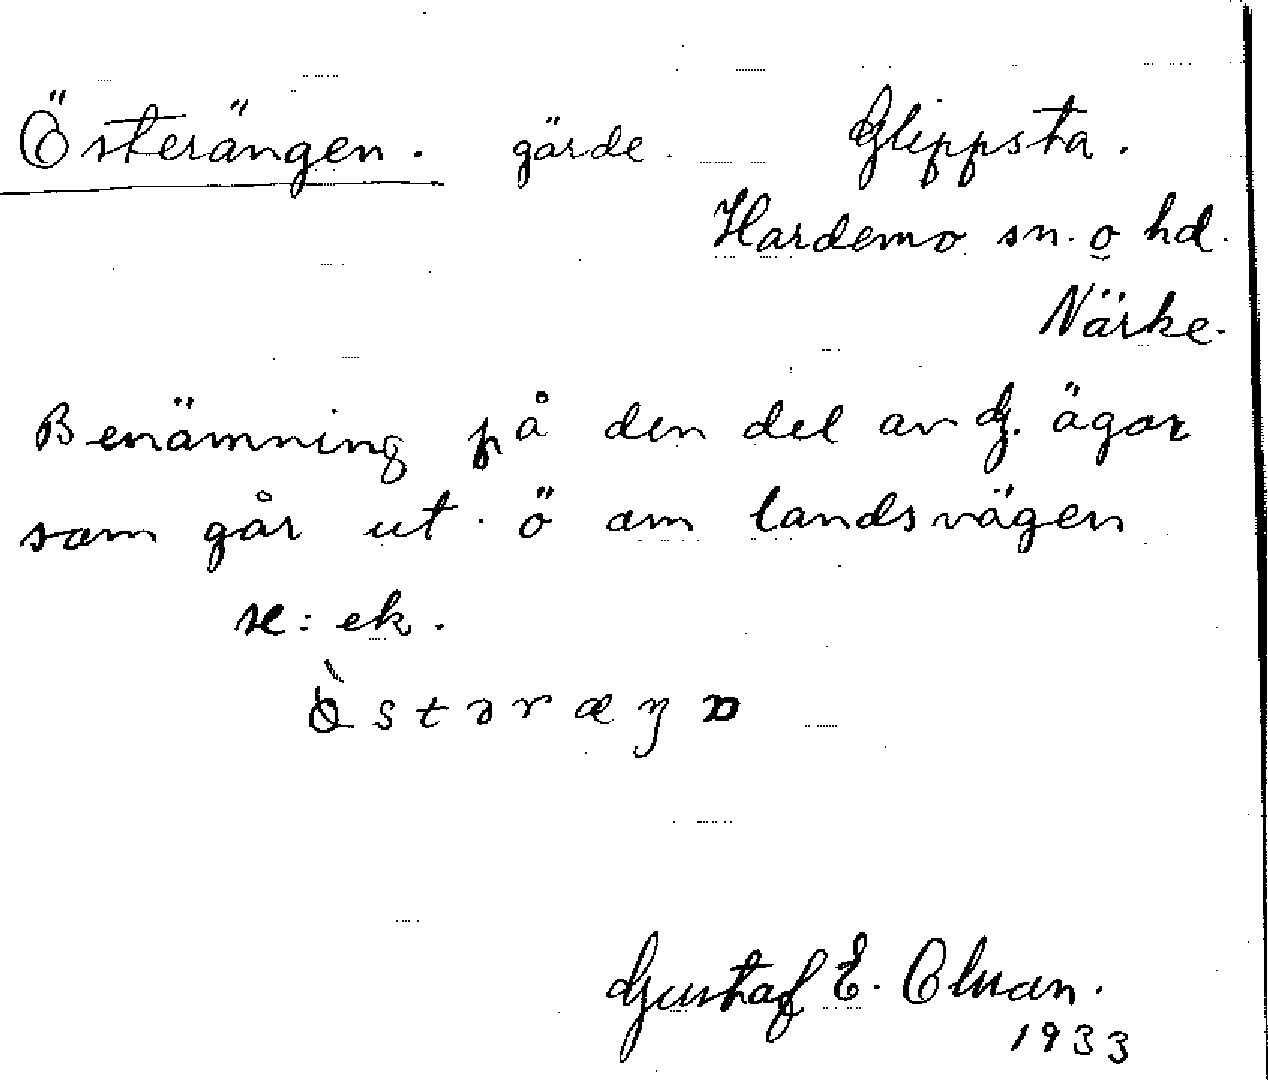 Österängen. gärde. Glippsta.
Hardemo sn. o hd.
Närke.
Benämning på den del av G. ägor
som går ut. ö om landsvägen
se: ek.
Gustaf E. Olsson.
1933